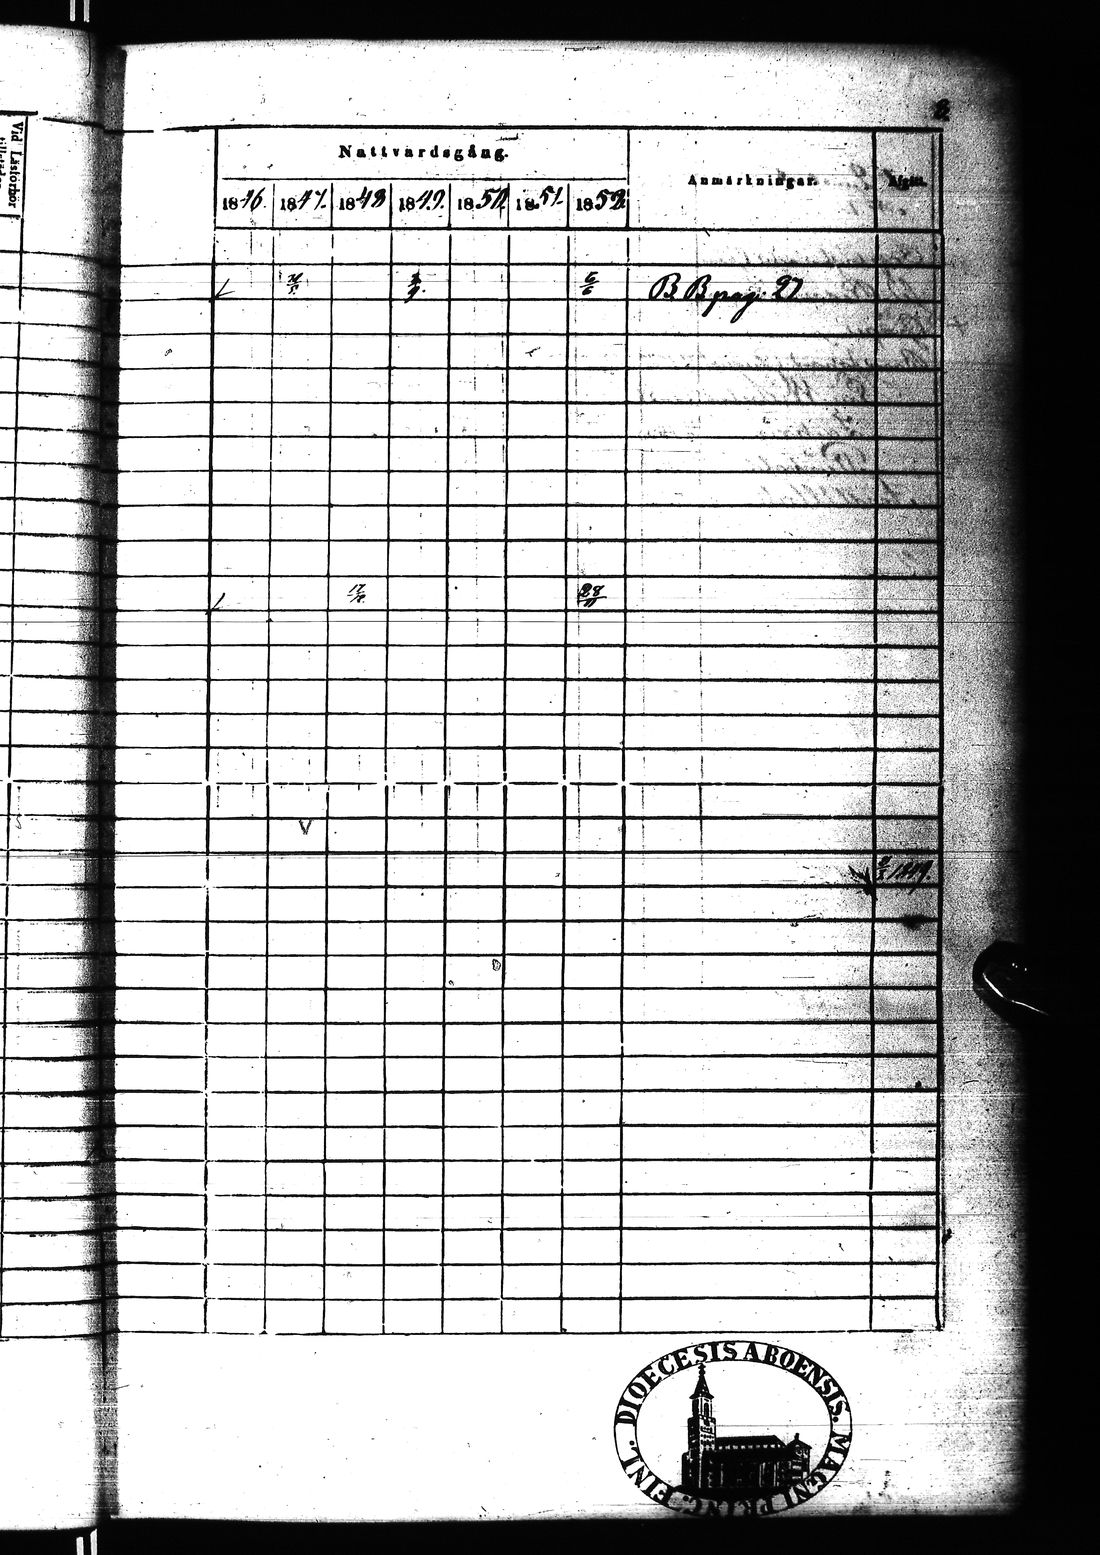 Vid Läsförhör
Nattvardsgång.
Anmärkningar.
Afgått.
1846. 1847. 1848 1849. 1850. 1851. 1852.
5/6 B B pag. 27
17/8 28/11
1849.
DIOECESIS ABOENSIS. MAGNI PRINC. FINL.